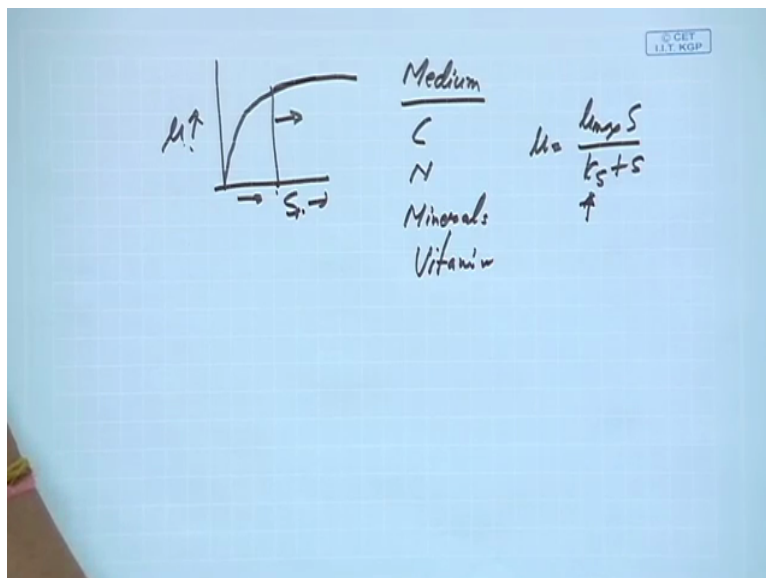 © CET
I.I.T. KGP
Medium
C
N
Minerals
Vitamin
μ ↑
→ S. →
μ = μmax S
Ks + S
↑